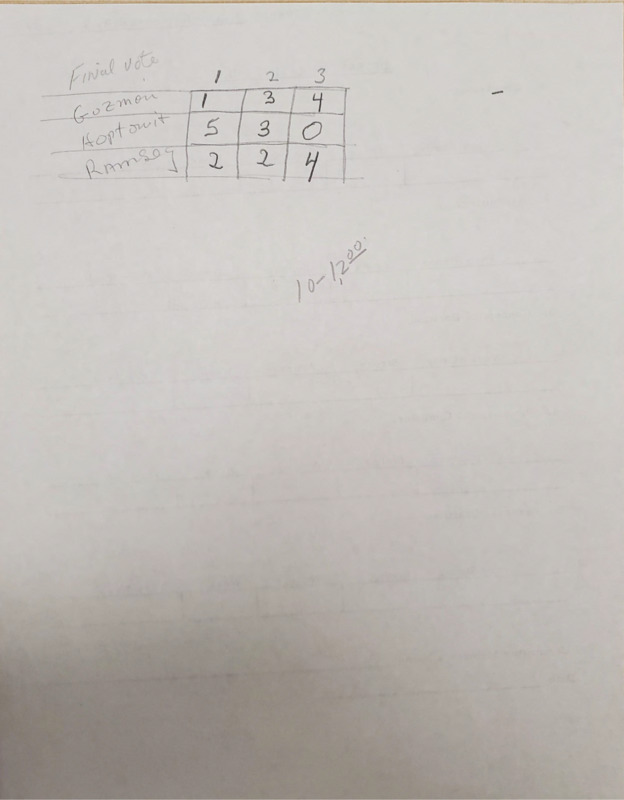 Final vote
1 2 3
Gozman 1 3 4
Hoptowit 5 3 0
Ramsey 2 2 4
10-12,00